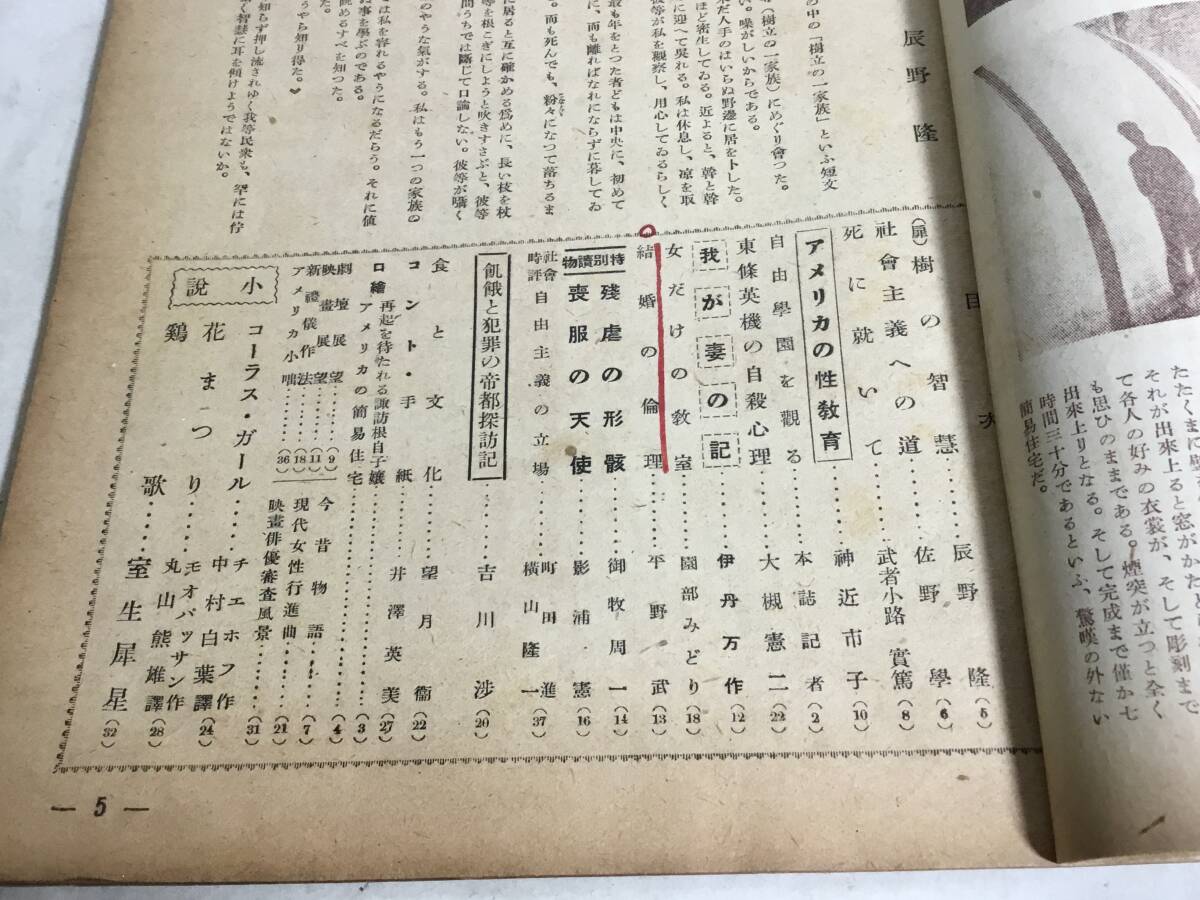 辰野隆
の中の「樹立の一家族」といふ短文
(樹立の一家族)にめぐり會つた。
い。噪がしいからである。
人手のはいらぬ野邊に居をトした。
ほど密生してゐる。近よると、幹と幹
に迎へて呉れる。私は休息し、凉を取
彼等が私を觀察し、用心してゐるらしく
最も年をとつた者どもは中央に、初めて
に、而も離ればなれにならずに暮してゐ
。而も死んでも、粉々になつて落ちるま
に居ると互に確かめる爲めに、長い枝を杖
等を根こぎにしようと吹きすさぶと、彼等
間うちでは斷じて口論しない。彼等が囁く
のやうな氣がする。私はもう一つの家族の
とは私を容れるやうになるだらう。それに値
ぬ事を學ぶのである。
眺めるすべを知つた。
うやら知り得た。
知らず押し流されゆく我等民衆も、罕には佇
く智慧に耳を傾けようではないか。
目次
(扉)樹の智慧……辰野隆(5)
社會主義への道……佐野學(6)
死に就いて……武者小路實篤(8)
アメリカの性敎育……神近市子(10)
自由學園を觀る……本誌記者(2)
東條英機の自殺心理……大槻憲二(22)
我が妻の記……伊丹万作(12)
女だけの敎室……園部みどり(18)
結婚の倫理……平野武(13)
特別讀物
殘虐の形骸……御牧周一(14)
喪服の天使……影浦憲(16)
社會時評 自由主義の立場……町田進 横山隆一(37)
飢餓と犯罪の帝都探訪記……吉川渉(20)
食と文化……望月衞(22)
コント・手紙……井澤英美(27)
口繪 再起を待たれる諏訪根自子孃
アメリカの簡易住宅……(3)
劇壇展望……(9)
映畫展望……(11)
新禮儀作法……(18)
アメリカ小咄……(36)
今昔物語……(4)
現代女性行進曲……(7)
映畫俳優審査風景……(21)
(31)
小說
コーラス・ガール……チエホフ作 中村白葉譯(24)
花まつり……モオパッサン作 丸山熊雄譯(28)
鷄歌……室生犀星(32)
それが出來上ると窓がかた
て各人の好みの衣裳が、そして彫刻まで
も思ひのままである。煙突が立つと全く
出來上りとなる。そして完成まで僅か七
時間三十分であるといふ、驚嘆の外ない
簡易住宅だ。
— 5 —